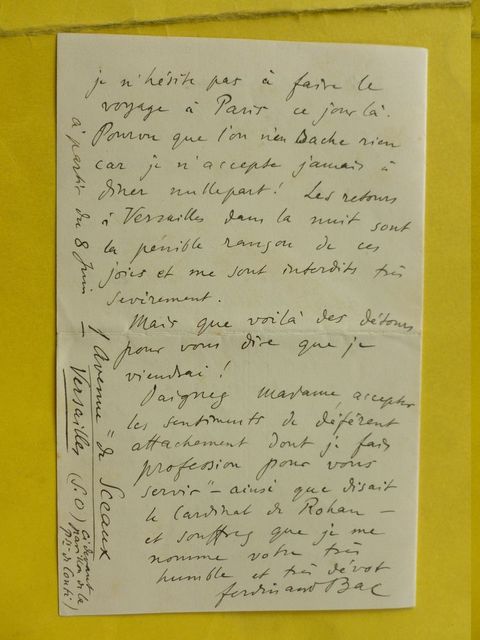 je n'hésite pas à faire le
voyage à Paris ce jour là.
Pourvu que l'on n'en sache rien
car je n'accepte jamais à
dîner nullepart! Les retours
à Versailles dans la nuit sont
la pénible rançon de ces
joies et me sont interdits très
sévèrement.
Mais que voilà des détours
pour vous dire que je
viendrai!
Daignez Madame, accepter
les sentiments de déférent
attachement dont je fais
profession pour vous
servir" – ainsi que disait
le Cardinal de Rohan –
et souffrez que je me
nomme votre très
humble et très dévot
Ferdinand Bac
à partir du 8 Juin – 1 Avenue "de Sceaux
Versailles (S.O)
ci devant
pavillon de la
Psse de Conti)